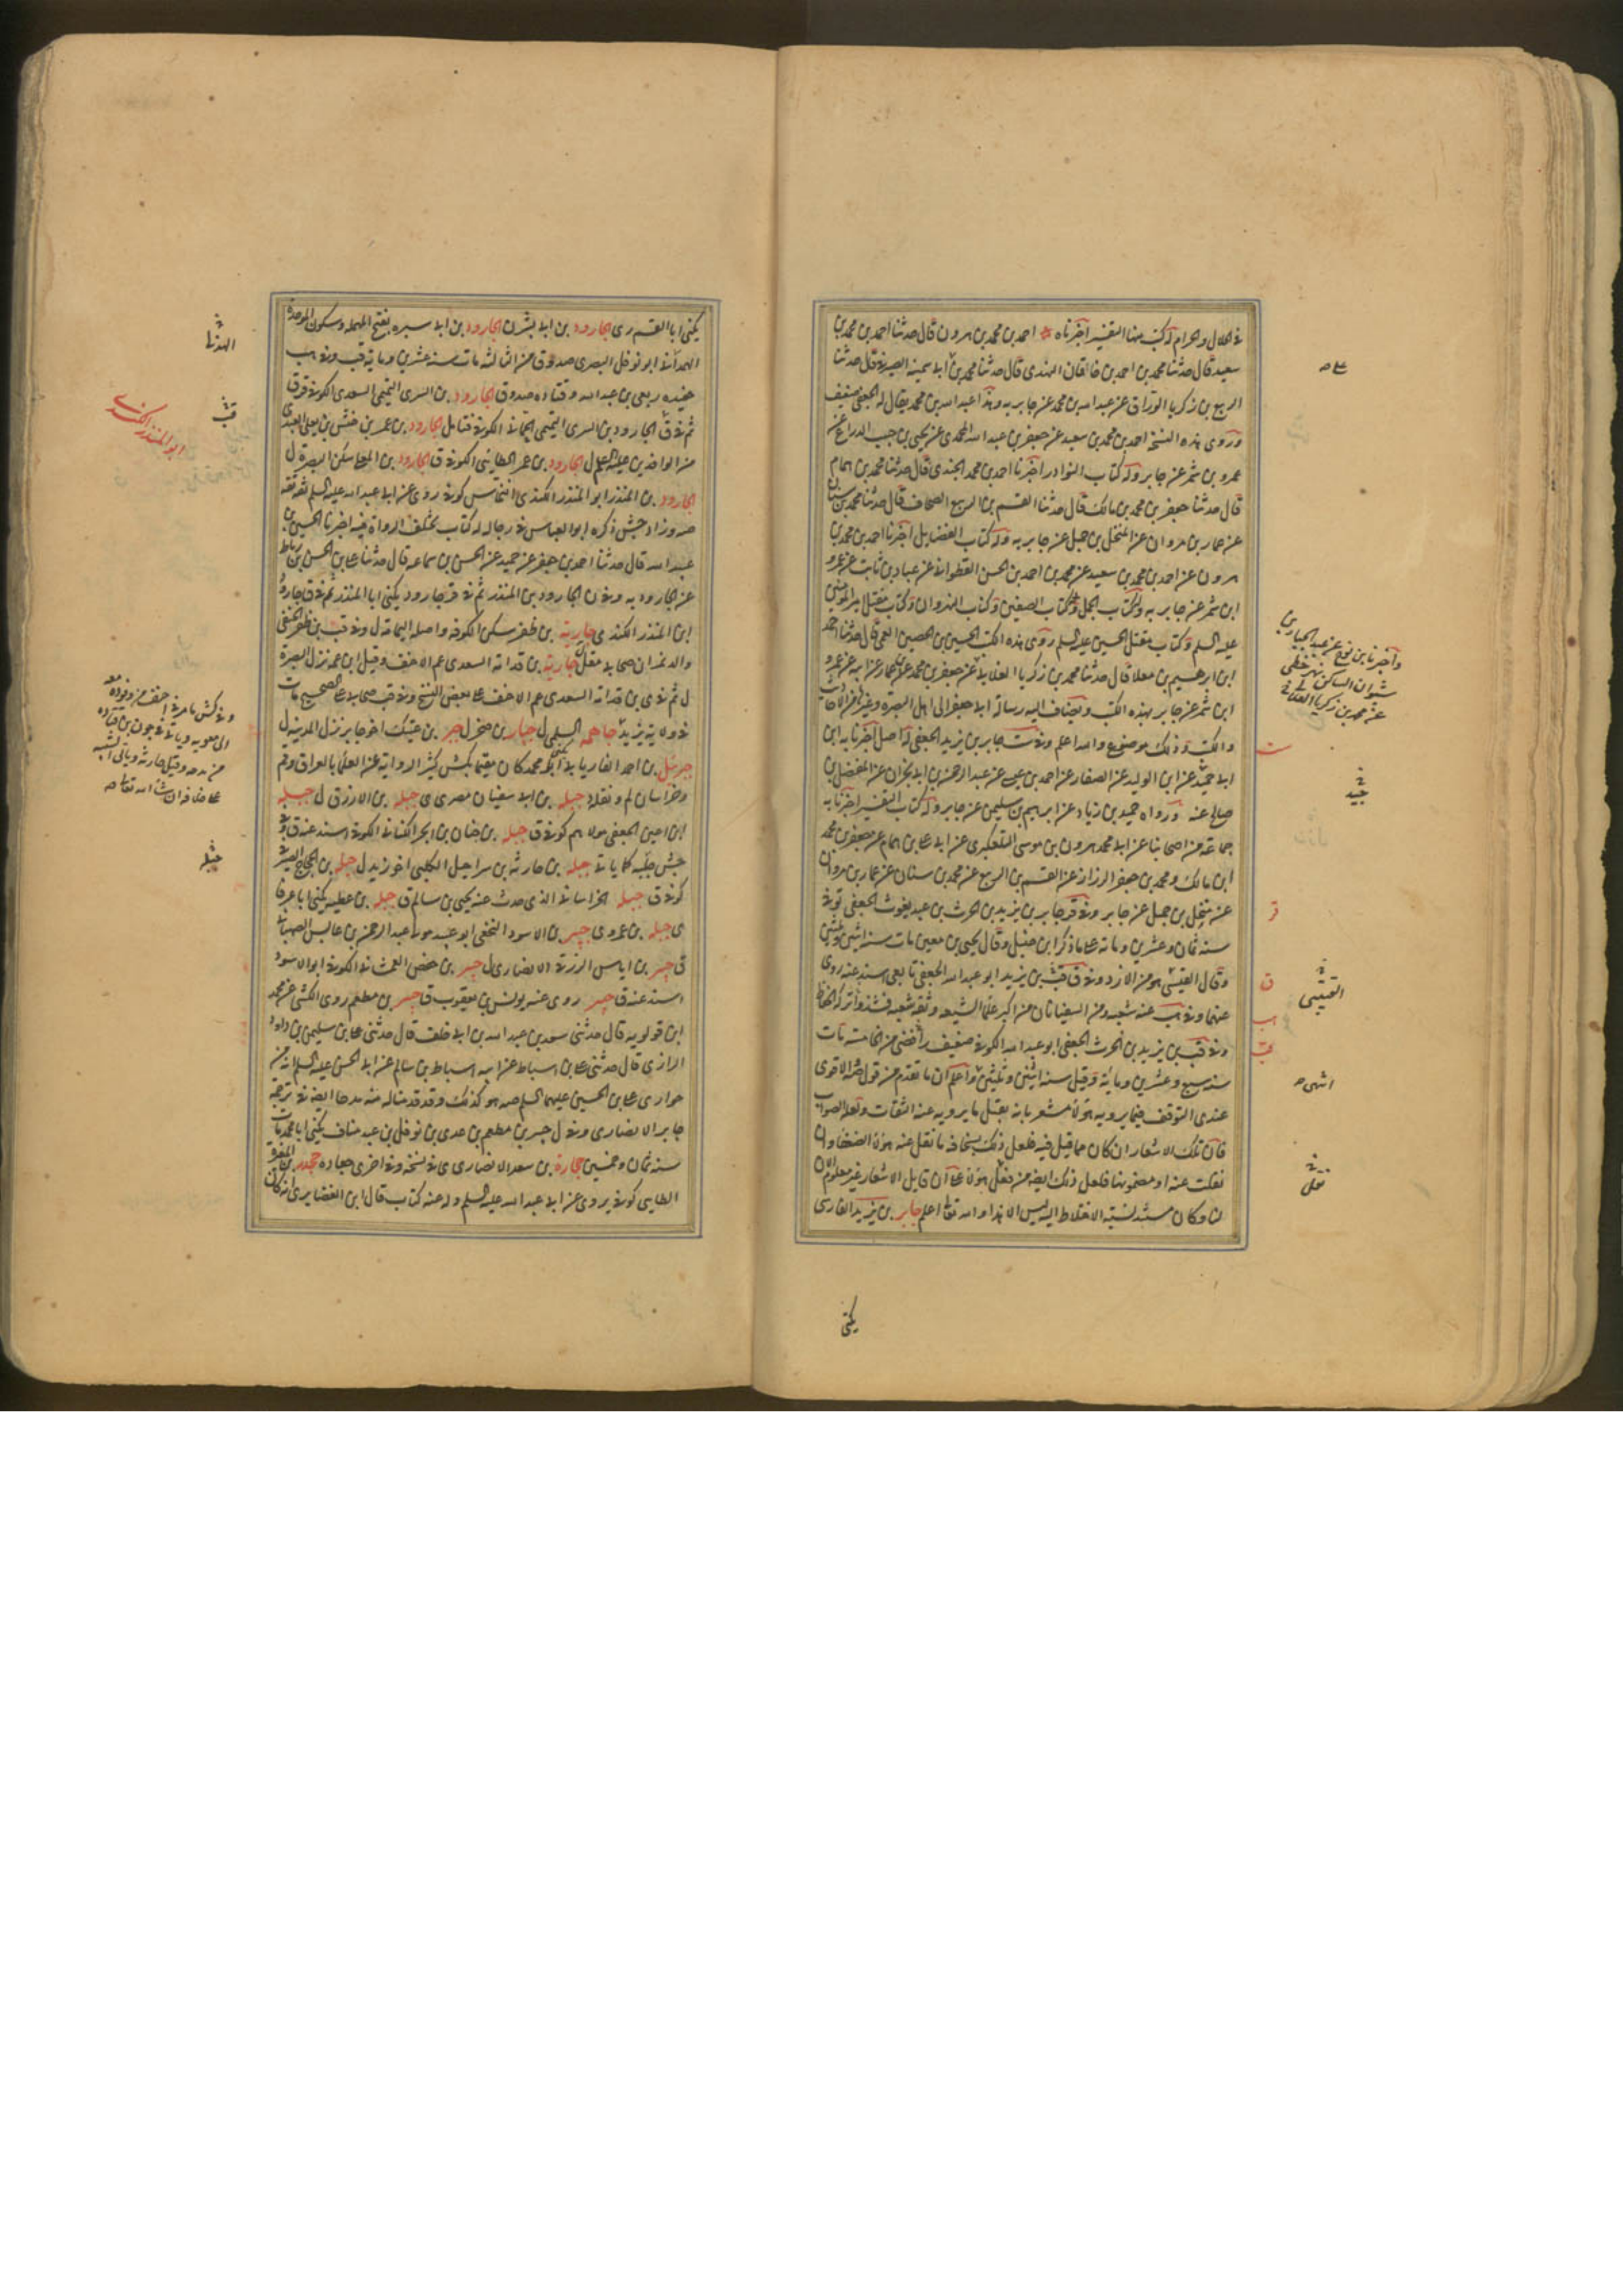 في الحلال والحرام له كتب منها التفسير اخبرناه احمد بن محمد بن هرون قال حدثنا احمد بن محمد بن
سعيد قال حدثنا محمد بن احمد بن خاقان النهدي قال حدثنا محمد بن علي ابو سمينة الصيرفي قال حدثنا
الربيع بن زكريا الوراق عن عبد الله بن محمد عن جابر به وهذا عبد الله بن محمد يقال له الجعفي ضعيف
وروى هذه النسخة احمد بن محمد بن سعيد عن جعفر بن عبد الله المحمدي عن يحيى بن حبيب الذراع عن
عمرو بن شمر عن جابر وله كتاب النوادر اخبرنا احمد بن محمد الجندي قال حدثنا محمد بن همام
قال حدثنا جعفر بن محمد بن مالك قال حدثنا القسم بن الربيع الصحاف قال حدثنا محمد بن سنان
عن عمار بن مروان عن المنخل بن جميل عن جابر به وله كتاب الفضايل اخبرنا احمد بن محمد بن
هرون عن احمد بن محمد بن سعيد عن محمد بن احمد بن الحسن القطواني عن عباد بن ثابت عن عمرو
ابن شمر عن جابر به وكتاب الجمل وكتاب الصفين وكتاب النهروان وكتاب مقتل امير المؤمنين
عليه السلم وكتاب مقتل الحسين عليه السلم روى هذه الكتب الحسين بن الحصين العمي قال حدثنا احمد
ابن ابرهيم بن معلا قال حدثنا محمد بن زكريا الغلابي عن جعفر بن محمد بن عمار عن ابيه عن عمرو
ابن شمر عن جابر بهذه الكتب وتضاف اليه رسالة ابي جعفر الى اهل البصرة وغيرها من الاحاديث
والكتب وذلك موضوع والله اعلم وفي ست جابر بن يزيد الجعفي له اصل اخبرنا به ابن
ابي جيد عن ابن الوليد عن الصفار عن احمد بن عيسى عن عبد الرحمن بن ابي نجران عن المفضل بن
صالح عنه ورواه حميد بن زياد عن ابرهيم بن سليمن عن جابر وله كتاب التفسير اخبرنا به
جماعة من اصحابنا عن ابي محمد هرون بن موسى التلعكبري عن ابي علي بن همام عن جعفر بن محمد
ابن مالك ومحمد بن جعفر الرزاز عن القسم بن الربيع عن محمد بن سنان عن عمار بن مروان
عن منخل بن جميل عن جابر وفي قر جابر بن يزيد بن الحرث بن عبد يغوث الجعفي توفي
سنة ثمان وعشرين ومائة على ما ذكر ابن حنبل وقال يحيى بن معين مات سنة اثنين وثلثين
وقال القتيبي هو من الازد وفي ق بن يزيد ابو عبد الله الجعفي تابعي اسند عنه روى
عنهما وفي هب عنه شعبة ومن السفيانان من اكبر علماء الشيعة وثقه شعبة فشذ وتركه الحفاظ
وفي قب بن يزيد بن الحرث الجعفي ابو عبد الله الكوفي ضعيف رافضي من الخامسة مات
سنة سبع وعشرين ومائة وقيل سنة اثنين وثلثين واعلم ان ما تقدم من قول صه الاقوى
عندي التوقف فيما يرويه هؤلاء مشعر بانه يقبل ما يرويه عنه الثقات ولعله الصواب
فان تلك الاشعار ان كان مما قيل فيه فلعل ذلك بسخافة ما نقل عنه هؤلاء الضعفاء وان
نقلت عنه او مضمونها فلعل ذلك ايضا من فعل هؤلاء على ان قايل الاشعار غير معلوم الان
لنا وكان مستند نسبة الاختلاط اليه ليس الا هذا والله تعالى اعلم جابر بن يزيد الفارسي
يكنى
صه
واخبرنا ابن نوح عن عبد الجبار بن
شيران الساكن نهر خطى
عن محمد بن زكريا الغلابي
جيد
القتيبي
انتهى
يكنى ابا القسم ري الجارود بن ابي بشر ن الجارود بن ابي سبرة بفتح المهملة وسكون الموحدة
الهذلي ابو نوفل البصري صدوق من الثالثة مات سنة عشرين ومائة قب وفي هب
حفيده ربعي بن عبد الله وقتادة صدوق الجارود بن السري التميمي السعدي الكوفي ق ق
ثم في ق الجارود بن السري التميمي الحماني الكوفي فتامل الجارود بن عمرو بن حنش بن يعلى العبدي
من الوافدين عليه السلم ل الجارود بن عمر الطائي الكوفي ق الجارود بن المعلى سكن البصرة ل
الجارود بن المنذر ابو المنذر الكندي النخاس كوفي روى عن ابي عبد الله عليه السلم ثقة ثقة
صه وزاد جش ذكره ابو العباس في رجاله له كتاب تختلف الرواة فيه اخبرنا الحسين بن
عبيد الله قال حدثنا احمد بن جعفر عن حميد عن الحسن بن سماعة قال حدثنا علي بن الحسن بن رباط
عن الجارود به وفي ن الجارود بن المنذر ثم في قر جارود يكنى ابا المنذر ثم في ق جارود
ابن المنذر الكندي ى جارية بن ظفر سكن الكوفة واصله اليمامة ل وفي قب بن ظفر الحنفي
والد نمران صحابي مقل جارية بن قدامة السعدي عم الاحنف وقيل ابن عمه نزل البصرة
ل ثم في ى بن قدامة السعدي عم الاحنف على بعض النسخ وفي قب صحابي على الصحيح مات
في ولاية يزيد جاهمه السلمي ل جبار بن صخر ل جبر بن عتيك اخو جابر نزل المدينة ل
جبرئيل بن احمد الفاريابي يكنى ابا محمد كان مقيما بكش كثير الرواية عن العلماء بالعراق وقم
وخراسان لم ونقله جبلة بن ابي سفيان مصري ى جبلة بن الازرق ل جبلة
ابن اعين الجعفي مولاهم كوفي ق جبلة بن حنان بن ابجر الكناني الكوفي اسند عنه ق
جش جلبة كما ياتي جبلة بن حارثة بن شراحيل الكلبي اخو زيد ل جبلة بن الحجاج الصيرفي
كوفي ق جبلة الخراساني الذي حدث عنه يحيى بن سالم ق جبلة بن عطية يكنى ابا عرفا
ى جبلة بن عمرو ى جبير بن الاسود النخعي ابو عبيد مولى عبد الرحمن بن عابس الصهباني
ق جبير بن اياس الزرقي الانصاري ل جبير بن حفص العمشاني الكوفي ابو الاسود
اسند عنه ق جبير روى عنه يونس بن يعقوب ق جبير بن مطعم روى الكشي عن محمد
ابن قولويه قال حدثني سعد بن عبد الله بن ابي خلف قال حدثني علي بن سليمن بن داود
الرازي قال حدثني علي بن اسباط عن ابيه اسباط بن سالم عن ابي الحسن عليه السلم انه من
حواري علي بن الحسين عليهما السلم صه هو كذلك وقد قدمنا له منه مدحا ايضا في ترجمة
جابر الانصاري وفي ل جبير بن مطعم بن عدي بن نوفل بن عبد مناف يكنى ابا محمد مات
سنة ثمان وخمسين جحارة بن سعد الانصاري ى في نسخة وفي اخرى جعادة جحدر بن المغيرة
الطايي كوفي يروى عن ابي عبد الله عليه السلم وله عنه كتاب قال ابن الغضايري انه كان
الهذلي
قب
ابو المنذر الكندي
جبلة